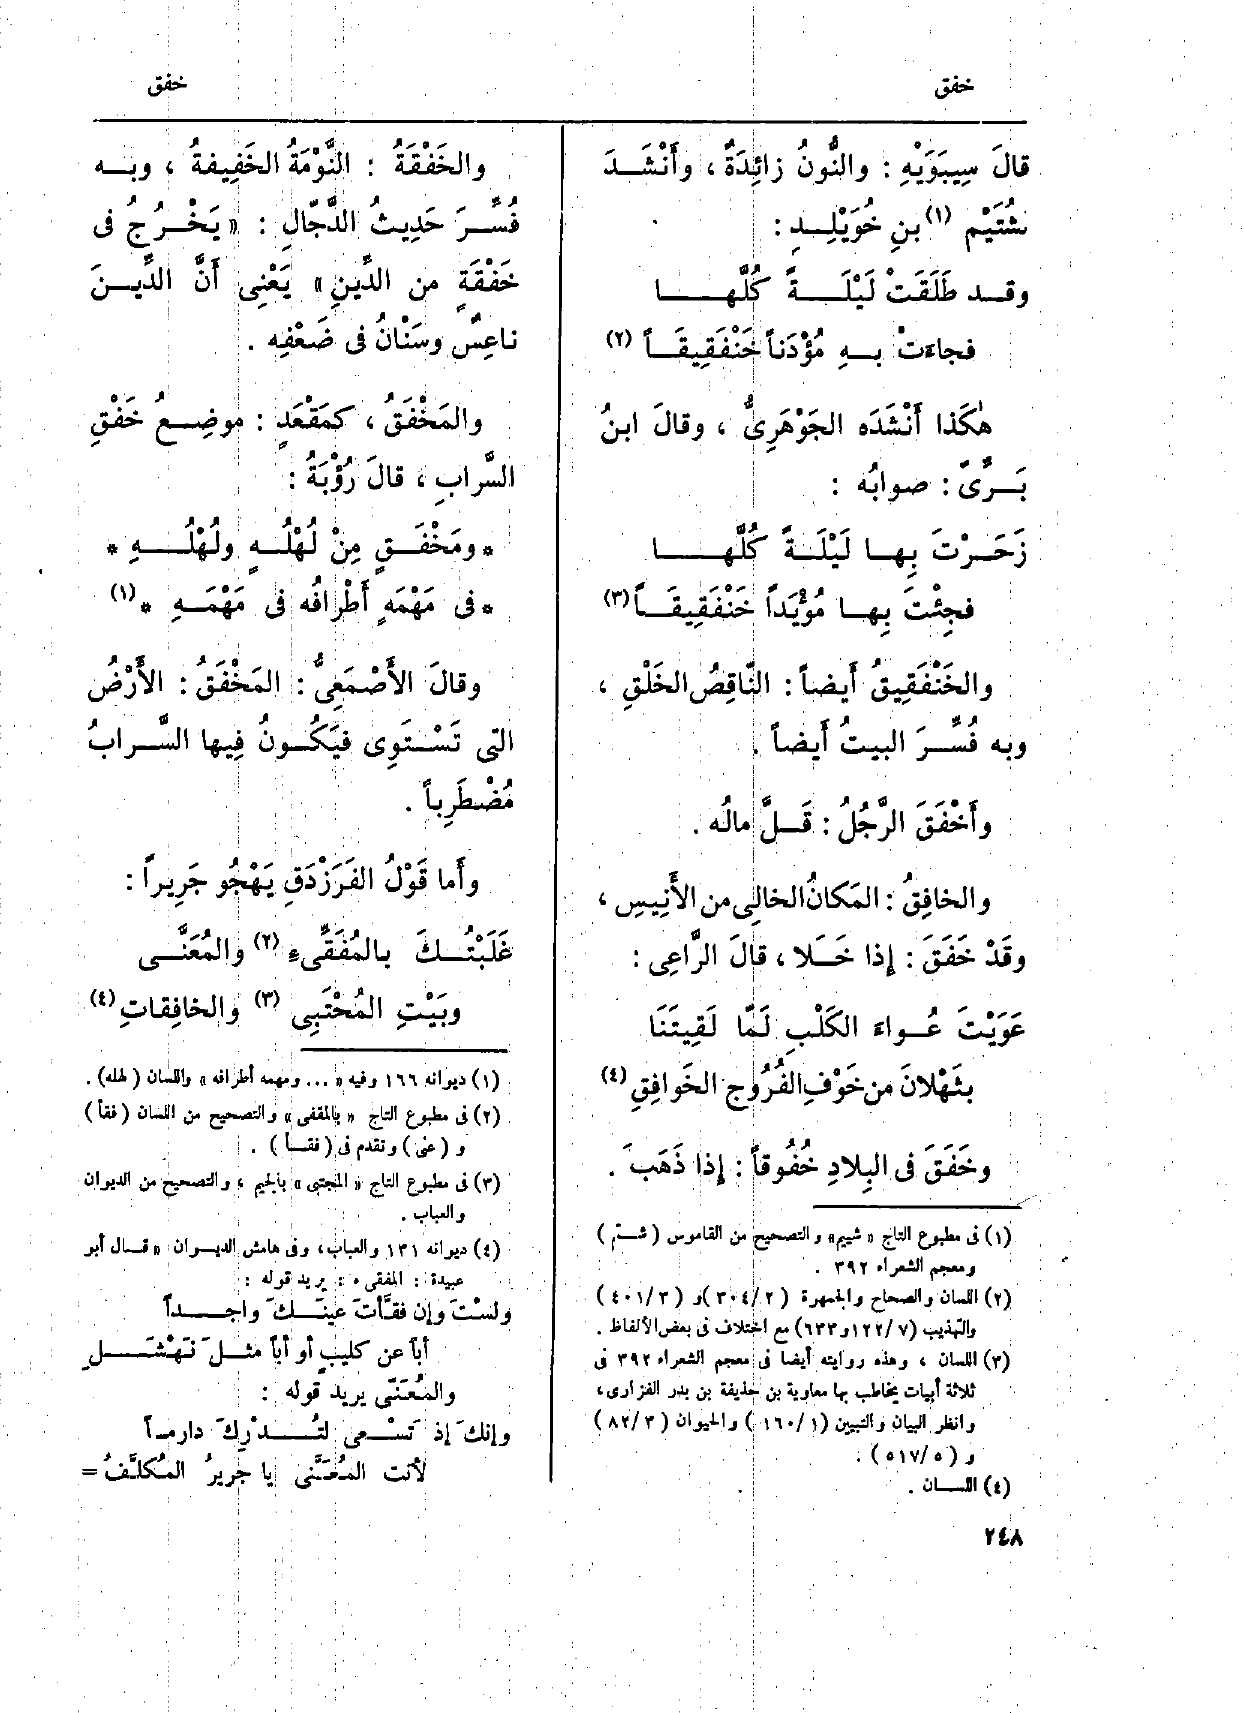 خفق
خفق
قالَ سِيبَوَيْهِ : والنُّونُ زائِدَةٌ ، وأَنْشَـــد
شُتَيْم (١) بنِ خُوَيْلِـــدٍ :
وقـــد طَلَقَتْ لَيْلَـــةً كُلَّهـــا
فجاءَتْ بـــهِ مُؤْدَناً خَنْفَقِيقَـــاً (٢)
هٰكَذا أَنْشَدَه الجَوْهَرِىُّ ، وقالَ ابنُ
بَـــرِّىّ : صوابُه :
زَحَـــرْتَ بِهـــا لَيْلَـــةً كُلَّهـــا
فجِئْتَ بِهـــا مُؤْيَداً خَنْفَقِيقَـــاً (٣)
والخَنْفَقِيقُ أَيضاً : النَّاقِصُ الخَلْقِ ،
وبه فُسِّـــرَ البيتُ أَيضاً .
وأَخْفَقَ الرَّجُلُ : قَـــلَّ مالُه .
والخافِقُ : المَكانُ الخالِى من الأَنِيسِ ،
وقَدْ خَفَقَ : إِذا خَـــلَا ، قالَ الرَّاعِى :
عَوَيْتَ عُـــواءَ الكَلْبِ لَمَّا لَقِيتَنَا
بثَهْلانَ من خَوْفِ الفُرُوجِ الخَوافِقِ (٤)
وخَفَقَ فى البِلادِ خُفُوقاً : إِذا ذَهَبَ .
(١) فى مطبوع التاج « شييم » والتصحيح من القاموس ( شتم )
ومعجم الشعراء ٣٩٢ .
(٢) اللسان والصحاح والجمهرة ( ٣٠٤/٢ ) و ( ٤٠١/٣ )
والتهذيب (١٢٢/٧ و ٦٣٣) مع اختلاف فى بعض الألفاظ .
(٣) اللسان ، وهذه روايته أيضا فى معجم الشعراء ٣٩٢ فى
ثلاثة أبيات يخاطب بها معاوية بن حذيفة بن بدر الفزارى،
وانظر البيان والتبيين ( ١٦٠/١ ) والحيوان ( ٨٢/٣ )
و ( ٥١٧/٥ ) .
(٤) اللســـان .
والخَفْقَةُ : النَّوْمَةُ الخَفِيفةُ ، وبـــه
فُسِّـــرَ حَدِيثُ الدَّجّالِ : « يَخْـــرُجُ فى
خَفْقَةٍ من الدِّينِ » يَعْنِى أَنَّ الدِّيـــنَ
ناعِسٌ وسَنْانُ فى ضَعْفِه .
والمَخْفَقُ ، كمَقْعَدٍ : موضِـــعُ خَفْقِ
السَّرابِ ، قالَ رُؤْبَةُ :
* ومَخْفَـــقٍ مِنْ لُهْلُـــهٍ ولُهْلُـــهِ *
* فى مَهْمَهٍ أَطْرافُه فى مَهْمَـــهِ * (١)
وقالَ الأَصْمَعِىُّ : المَخْفَقُ : الأَرْضُ
التى تَسْتَوِى فيَكُـــونُ فِيها السَّـــرابُ
مُضْطَرِباً .
وأَما قَوْلُ الفَرَزْدَقِ يَهْجُو جَرِيراً :
غَلَبْتُـــكَ بالمُفَقِّىءِ (٢) والمُعَنَّـــى
وبَيْتِ المُحْتَبِى (٣) والخافِقاتِ (٤)
(١) ديوانه ١٦٦ وفيه « ... ومهمه أطرافه » واللسان ( لهله ) .
(٢) فى مطبوع التاج « بالمقفى » والتصحيح من اللسان ( فقأ )
و ( عنى ) وتقدم فى ( فقـــأ ) .
(٣) فى مطبوع التاج « المجتبى » بالجيم ، والتصحيح من الديوان
والعباب .
(٤) ديوانه ١٣١ والعباب، وفى هامش الديـــوان « قـــال أبو
عبيدة : المفقىء : يريد قوله :
ولستَ وإن فقّأتَ عينَـــكَ واجـــداً
أباً عن كليبٍ أو أباً مثـــلَ نَهْشَـــلِ
والمُعَنَّى يريد قوله :
وإنكَ إذ تَسْـــعى لتُـــدْرِكَ دارمـــاً
لأنت المُعَنَّى يا جريرُ المُكلَّفُ =
٢٤٨